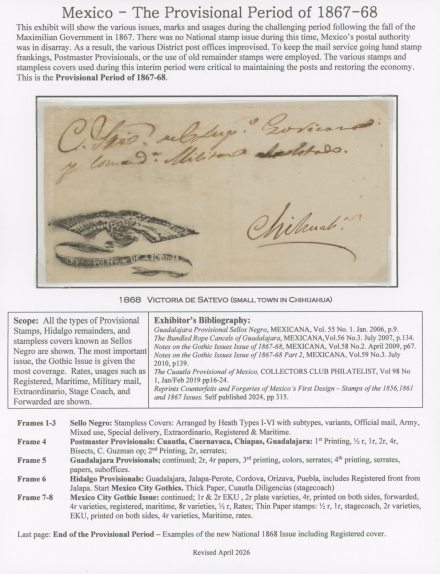 Mexico – The Provisional Period of 1867-68
This exhibit will show the various issues, marks and usages during the challenging period following the fall of the
Maximilian Government in 1867. There was no National stamp issue during this time, Mexico's postal authority
was in disarray. As a result, the various District post offices improvised. To keep the mail service going hand stamp
frankings, Postmaster Provisionals, or the use of old remainder stamps were employed. The various stamps and
stampless covers used during this interim period were critical to maintaining the posts and restoring the economy.
This is the Provisional Period of 1867-68.
Chihuaha
1868 Victoria de Satevo (small town in Chihuahua)
Scope: All the types of Provisional
Stamps, Hidalgo remainders, and
stampless covers known as Sellos
Negro are shown. The most important
issue, the Gothic Issue is given the
most coverage. Rates, usages such as
Registered, Maritime, Military mail,
Extraordinario, Stage Coach, and
Forwarded are shown.
Exhibitor's Bibliography:
Guadalajara Provisional Sellos Negro, MEXICANA, Vol. 55 No. 1. Jan. 2006, p.9.
The Bundled Rope Cancels of Guadalajara, MEXICANA, Vol.56 No.3 July 2007, p.134.
Notes on the Gothic Issues Issue of 1867-68, MEXICANA, Vol.58 No.2. April 2009, p67.
Notes on the Gothic Issues Issue of 1867-68 Part 2, MEXICANA, Vol.59 No.3. July
2010, p139.
The Cuautla Provisional of Mexico, COLLECTORS CLUB PHILATELIST, Vol 98 No
1, Jan/Feb 2019 pp16-24.
Reprints Counterfeits and Forgeries of Mexico's First Design – Stamps of the 1856,1861
and 1867 Issues. Self published 2024, pp 315.
Frames 1-3 Sello Negro: Stampless Covers: Arranged by Heath Types I-VI with subtypes, variants, Official mail, Army,
Mixed use, Special delivery, Extraordinario, Registered & Maritime.
Frame 4 Postmaster Provisionals: Cuautla, Cuernavaca, Chiapas, Guadalajara: 1st Printing, ½ r, 1r, 2r, 4r,
Bisects, C. Guzman op; 2nd Printing, 2r, serrates;
Frame 5 Guadalajara Provisionals; continued; 2r, 4r papers, 3rd printing, colors, serrates; 4th printing, serrates,
papers, suboffices.
Frame 6 Hidalgo Provisionals: Guadalajara, Jalapa-Perote, Cordova, Orizava, Puebla, includes Registered front from
Jalapa. Start Mexico City Gothics. Thick Paper, Cuautla Diligencias (stagecoach)
Frame 7-8 Mexico City Gothic Issue: continued; 1r & 2r EKU , 2r plate varieties, 4r, printed on both sides, forwarded,
4r varieties, registered, maritime, 8r varieties, ½ r, Rates; Thin Paper stamps: ½ r, 1r, stagecoach, 2r varieties,
EKU, printed on both sides, 4r varieties, Maritime, rates.
Last page: End of the Provisional Period – Examples of the new National 1868 Issue including Registered cover.
Revised April 2026